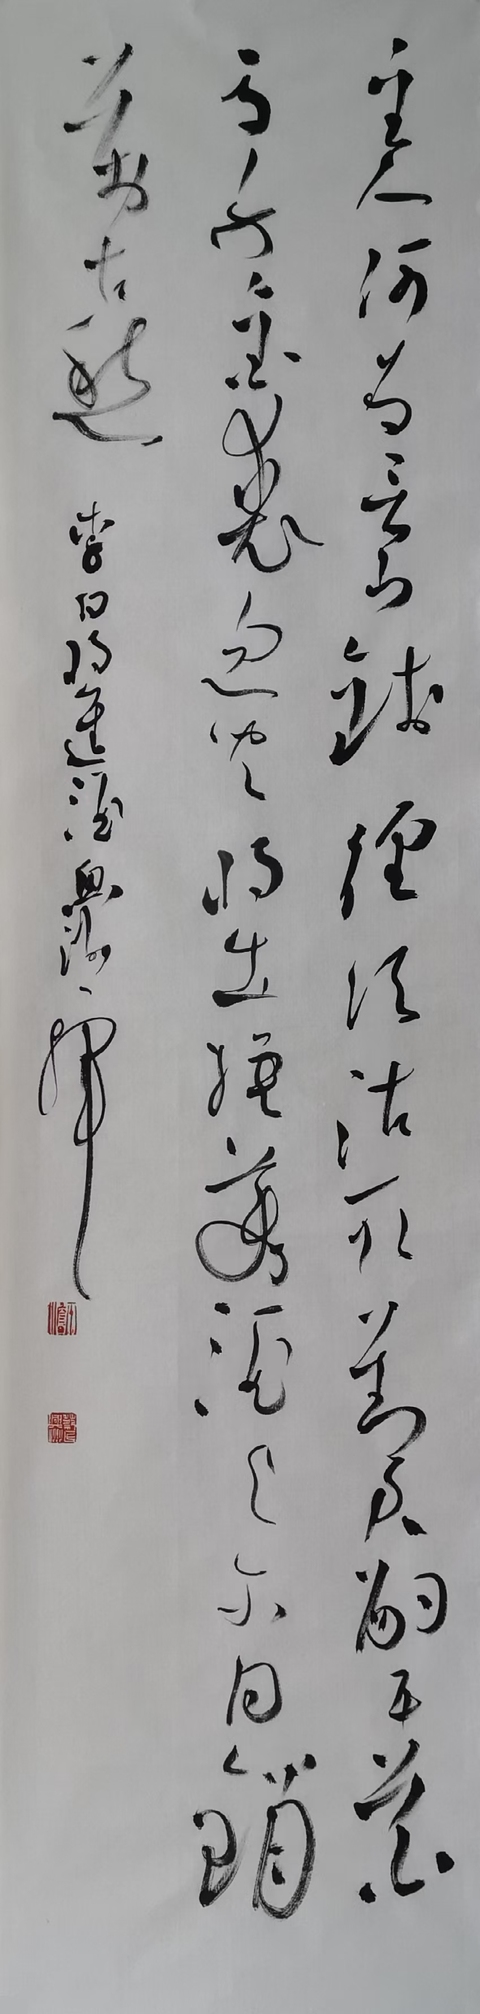 主人何為言少錢徑須沽取對君酌五花
馬千金裘呼兒將出換美酒與爾同銷
萬古愁 李白將進酒